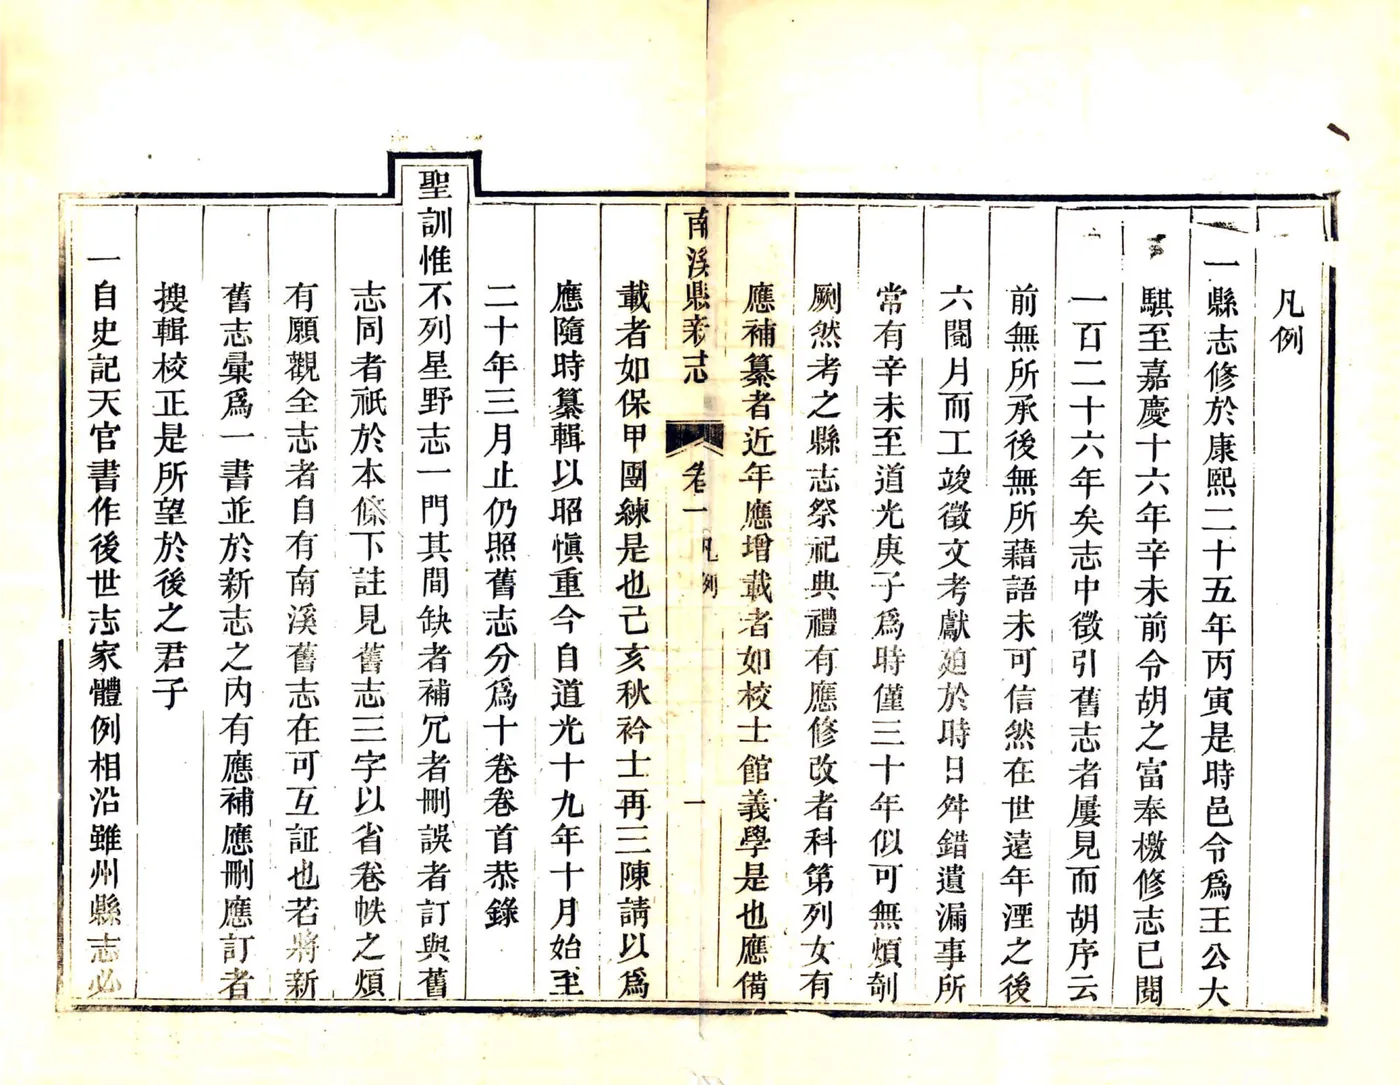 凡例
一縣志修於康熙二十五年丙寅是時邑令爲王公大
騏至嘉慶十六年辛未前令胡之富奉檄修志已閱
一百二十六年矣志中徵引舊志者屢見而胡序云
前無所承後無所藉語未可信然在世遠年湮之後
六閱月而工竣徵文考獻廹於時日舛錯遺漏事所
常有辛未至道光庚子爲時僅三十年似可無煩剞
劂然考之縣志祭祀典禮有應修改者科第列女有
應補纂者近年應增載者如校士館義學是也應備
南溪縣新志 卷一 凡例 一
載者如保甲團練是也己亥秋衿士再三陳請以爲
應隨時纂輯以昭慎重今自道光十九年十月始至
二十年三月止仍照舊志分爲十卷卷首恭錄
聖訓惟不列星野志一門其間缺者補冗者刪誤者訂與舊
志同者祇於本條下註見舊志三字以省卷帙之煩
有願觀全志者自有南溪舊志在可互証也若將新
舊志彙爲一書並於新志之內有應補應刪應訂者
搜輯校正是所望於後之君子
一自史記天官書作後世志家體例相沿雖州縣志必